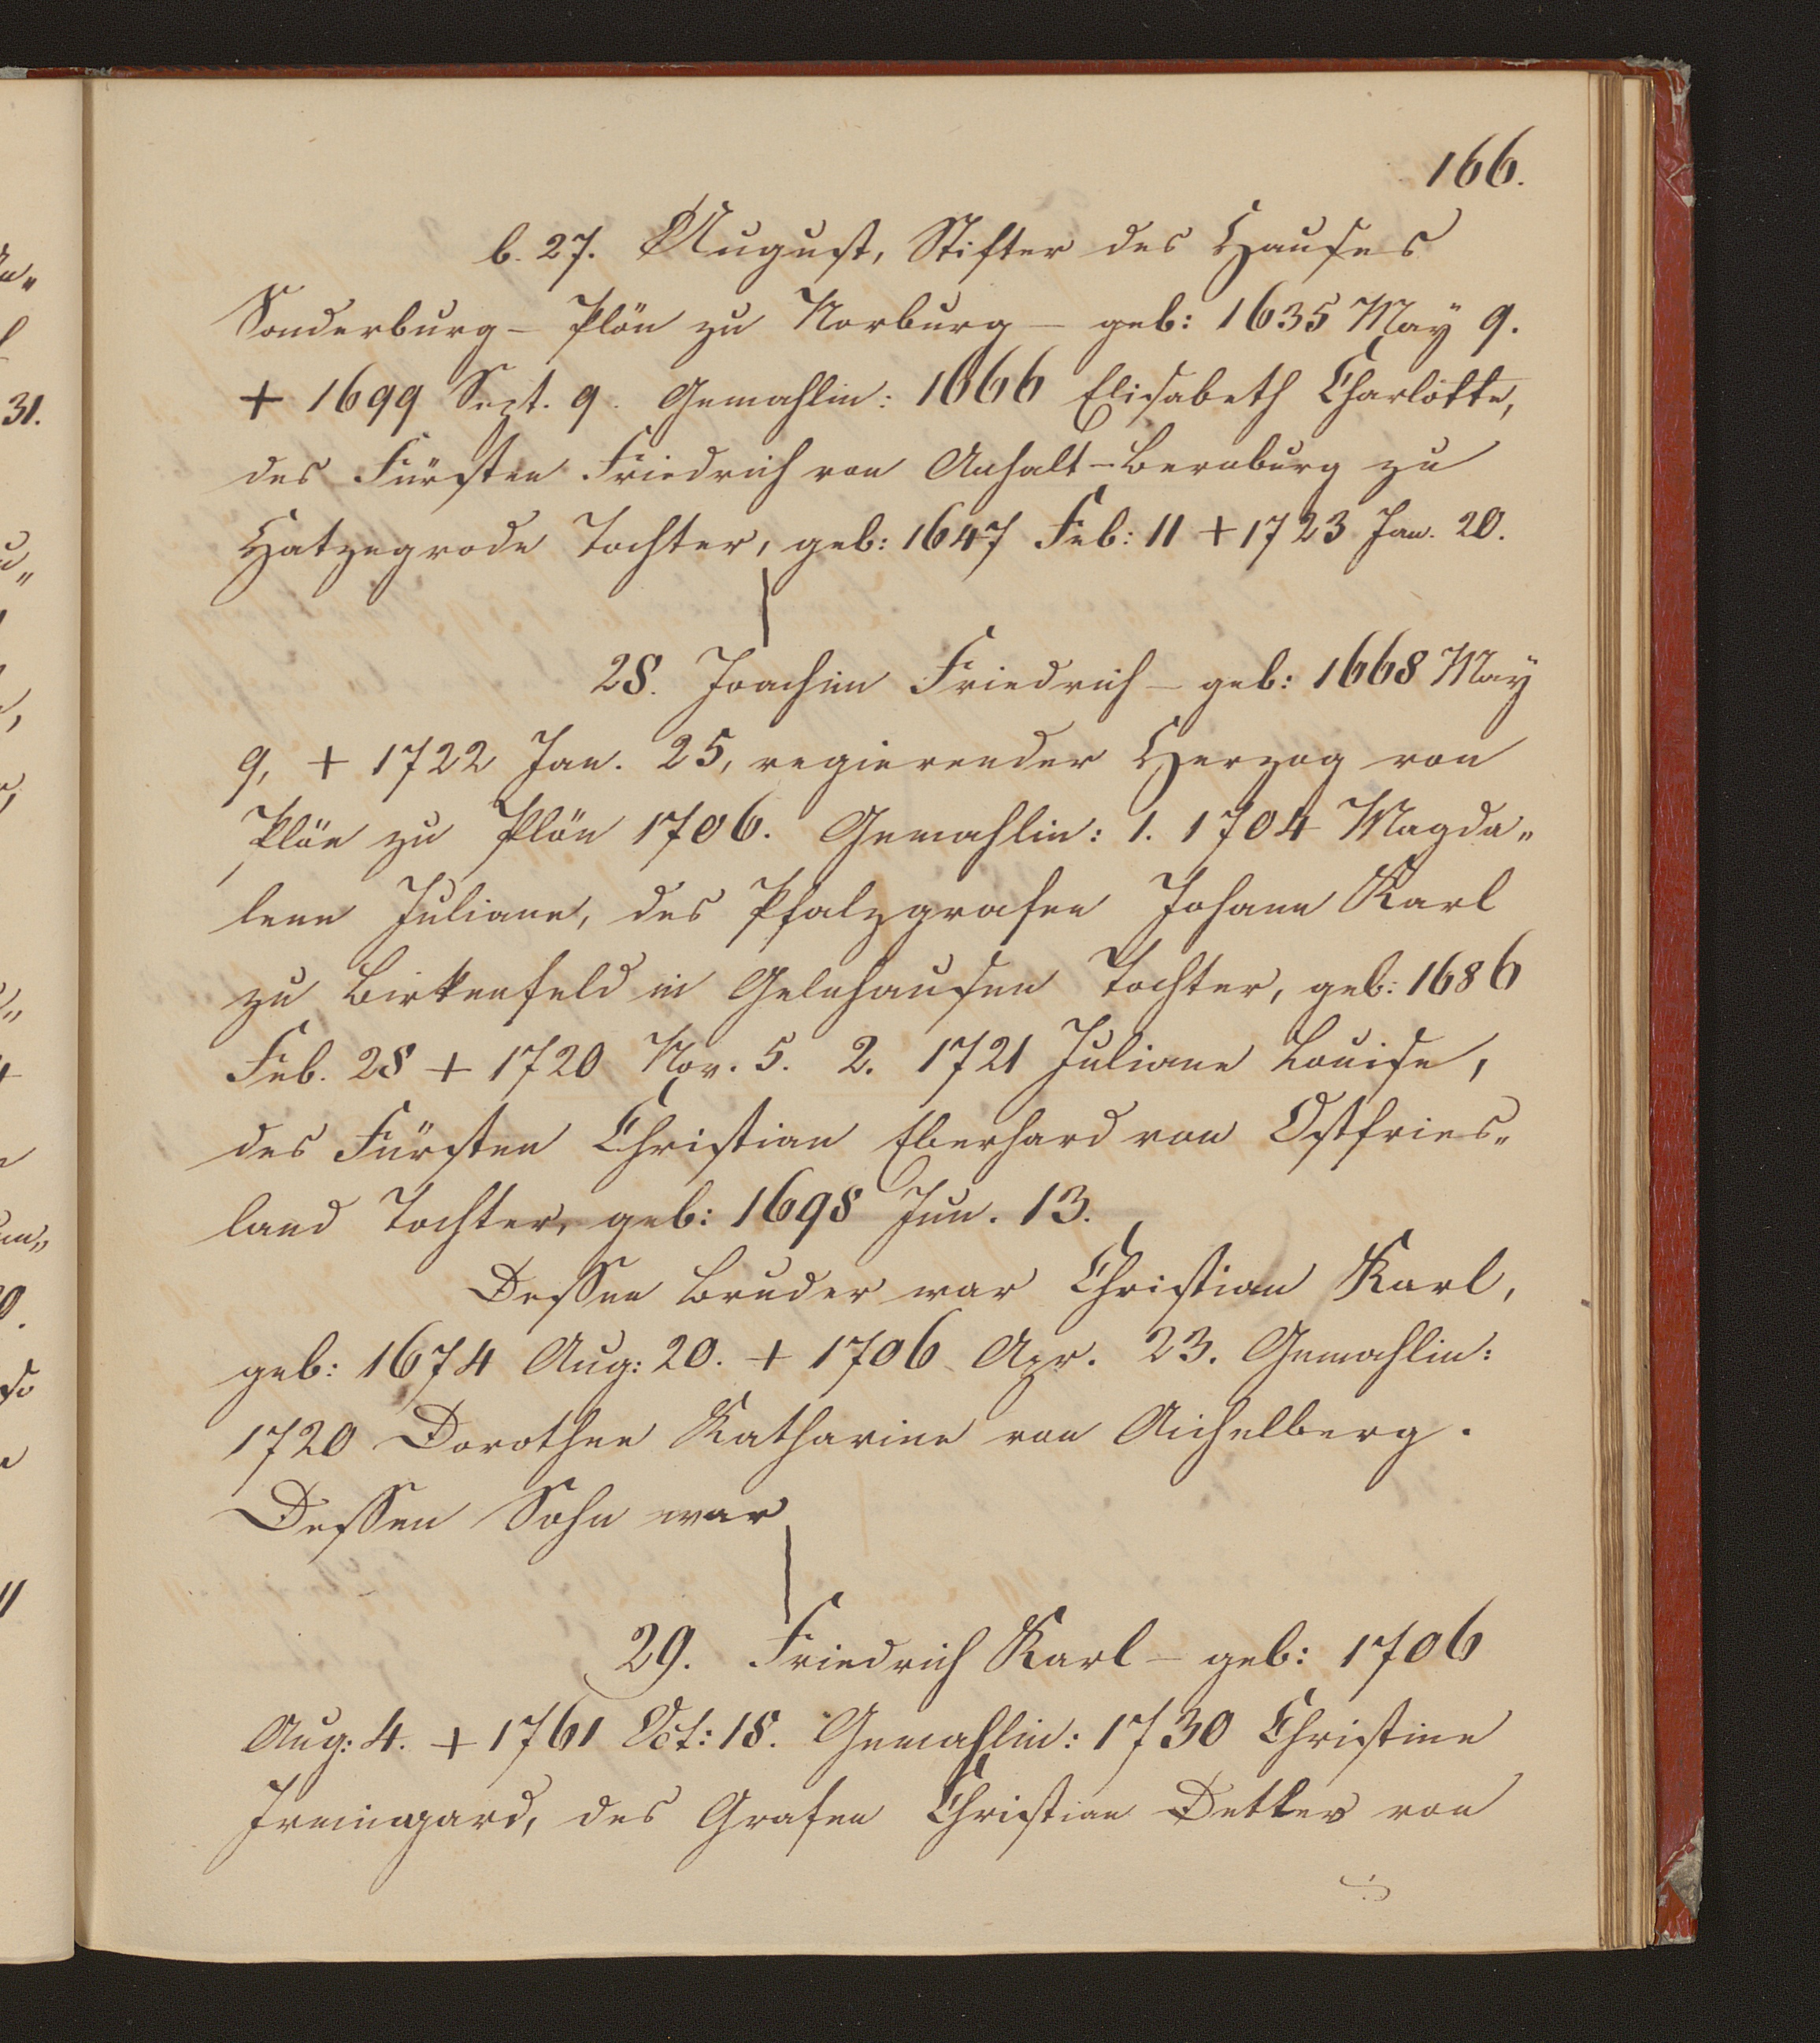 166.
b. 27. August, Stifter des Hauses
Sonderburg - Plön zu Norburg - geb: 1635 May 9.
+ 1699 Sept. 9. Gemahlin: 1666 Elisabeth Charlotte,
des Fürsten Friedrich von Anhalt-Bernburg zu
Hatzegrode Tochter, geb: 1647 Feb: 11 + 1723 Jan. 20.
28. Joachim Friedrich - geb: 1668 May
9, + 1722 Jan. 25, regierender Herzog von
Plön zu Plön 1706. Gemahlin: 1. 1704 Magda„
lene Juliane, des Pfalzgrafen Johann Karl
zu Birkenfeld in Gelnhausen Tochter, geb: 1686
Feb. 28 + 1720 Nov. 5. 2. 1721 Juliane Louise,
des Fürsten Christian Eberhard von Ostfries„
land Tochter, geb: 1698 Jun. 13.
Dessen Bruder war Christian Karl,
geb: 1674 Aug: 20. + 1706 Apr. 23. Gemahlin:
1720 Dorothee Katharine von Aichelberg.
Dessen Sohn war
29. Friedrich Karl - geb: 1706
Aug: 4. + 1761 Oct: 18. Gemahlin: 1730 Christine
Irmingard, des Grafen Christian Detlev von